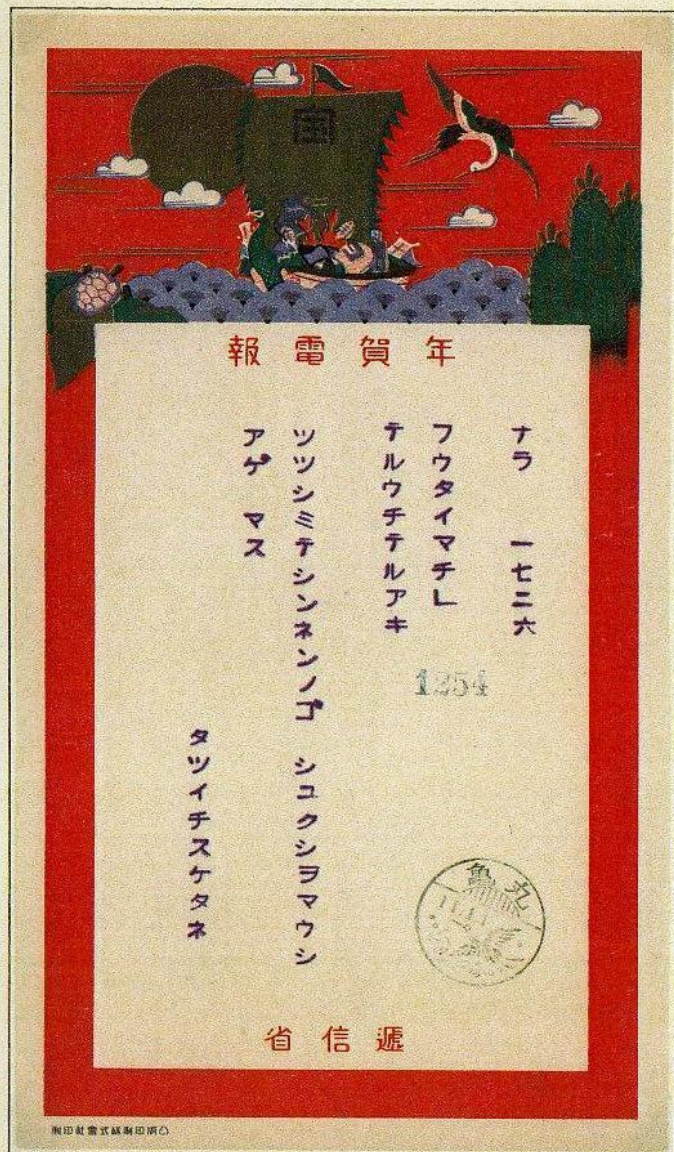 宝
年賀電報
ナラ 一七二六
フウタイマチ」
テルウチテルアキ
ツツシミテシンネンノゴ シユクシヲマウシ
アゲ マス
タツイチスケタネ
1254
丸龜
遞信省
凸版印刷株式會社印刷